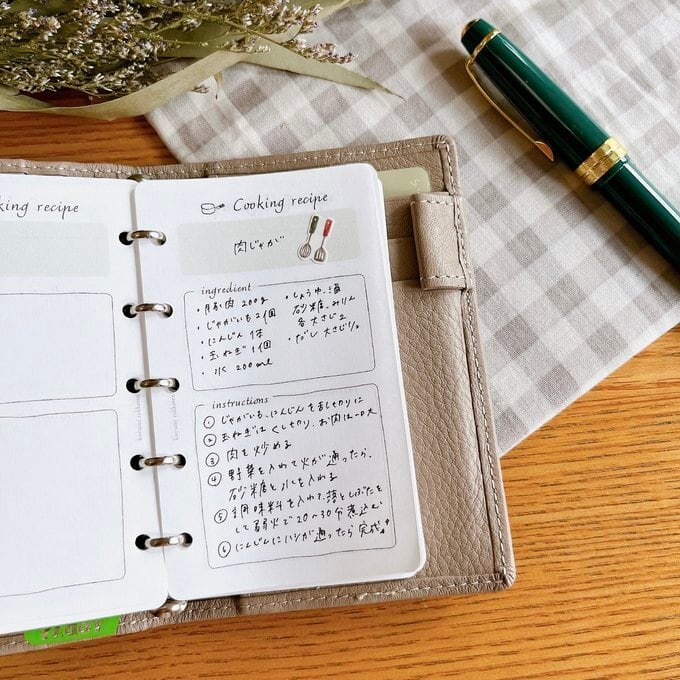 king recipe
Cooking recipe
肉じゃが
ingredient
・豚肉 200g
・じゃがいも 2個
・にんじん 1本
・玉ねぎ 1個
・水 200ml
・しょうゆ、酒
砂糖、みりん
各大さじ2
・だし 大さじ1/2
instructions
① じゃがいも、にんじんを乱切りに
② 玉ねぎはくし切り、お肉は一口大
③ 肉を炒める
④ 野菜を入れて火が通ったら、
砂糖と水を入れる
⑤ 調味料を入れて、落としぶたを
して弱火で20〜30分煮込む
⑥ にんじんにハシが通ったら完成